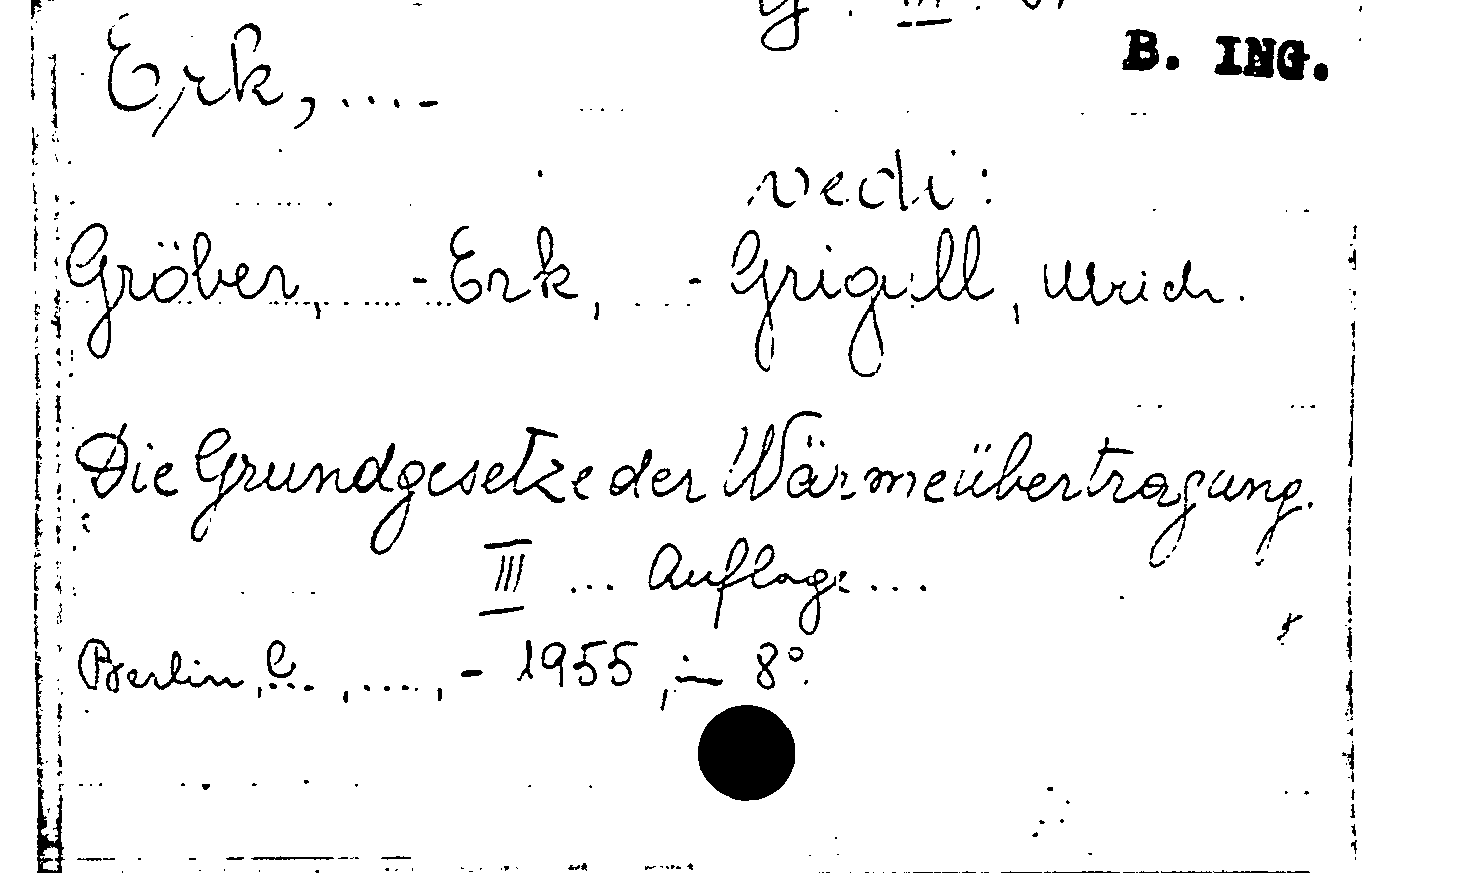 B. ING.
Erk, ....-
vedi:
Gröber, ....-Erk, ...-Grigull, Ulrich.
Die Grundgesetze der Wärmeübertragung.
III ... Auflage ...
Berlin, ..., ...., - 1955, - 8°.